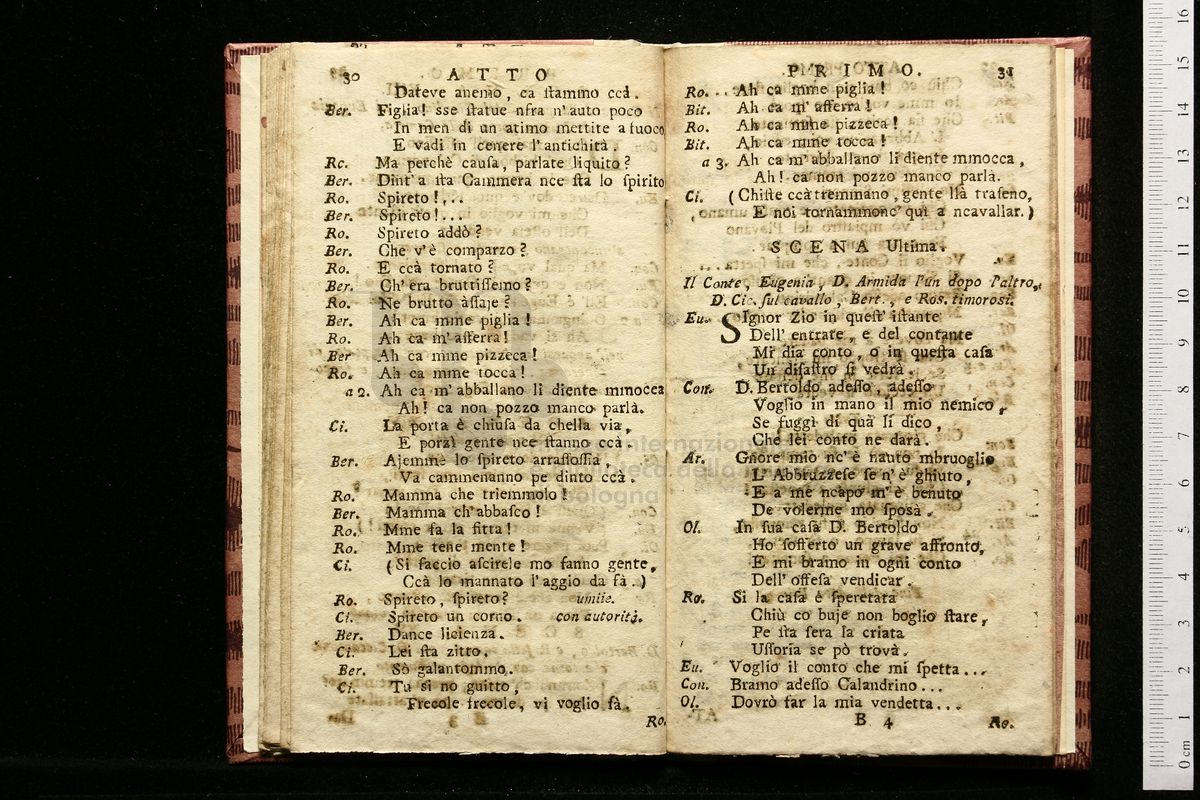 30 ATTO
Dateve anemo, ca ſtammo ccà.
Ber. Figlia! sse ſtatue nfra n'auto poco
In men di un atimo mettite a fuoco
E vadi in cenere l'antichità.
Rc. Ma perchè cauſa, parlate liquito?
Ber. Dint'a ſta Cammera nce ſta lo ſpirito
Ro. Spireto!...
Ber. Spireto!...
Ro. Spireto addò?
Ber. Che v'è comparzo?
Ro. E ccà tornato?
Ber. Ch'era bruttiſſemo?
Ro. Ne brutto àſſaje?
Ber. Ah ca mme piglia!
Ro. Ah ca m'afferra!
Ber Ah ca mme pizzeca!
Ro. Ah ca mme tocca!
a 2. Ah ca m'abballano li diente mmocca
Ah! ca non pozzo manco parlà.
Ci. La porta è chiuſa da chella via,
E porzì gente nce ſtanno ccà.
Ber. Ajemmè lo ſpireto arraſſoſſia,
Va cammenanno pe dinto ccà.
Ro. Mamma che triemmolo!
Ber. Mamma ch'abbaſco!
Ro. Mme fa la fitta!
Ro. Mme tene mente!
Ci. (Si faccio aſcirele mo fanno gente,
Ccà lo mannato l'aggio da fà.)
Ro. Spireto, ſpireto? umile.
Ci. Spireto un corno. con autorità.
Ber. Dance licienza.
Ci. Lei ſta zitto.
Ber. Sò galantommo.
Ci. Tu sì no guitto,
Frecole frecole, vi voglio fà.
Ro.
PRIMO. 31
Ro... Ah ca mme piglia!
Bit. Ah ca m'afferra!
Ro. Ah ca mme pizzeca!
Bit. Ah ca mme tocca!
a 3. Ah ca m'abballano li diente mmocca,
Ah! ca non pozzo manco parlà.
Ci. (Chiſte ccà tremmano, gente llà traſeno,
E noi tornammonc' quì a ncavallar.)
SCENA Ultima.
Il Conte, Eugenia, D. Armida l'un dopo l'altro,
D. Cic. ſul cavallo, Bert., e Ros. timorosi.
Eu. SIgnor Zio in queſt'iſtante
Dell'entrate, e del contante
Mi dia conto, o in queſta caſa
Un diſaſtro ſi vedrà.
Con. D. Bertoldo adeſſo, adeſſo
Voglio in mano il mio nemico,
Se fuggì di quà lí dico,
Che lei conto ne darà.
Ar. Gnore mio nc'è nauto mbruoglio
L'Abbruzzeſe ſe n'è ghiuto,
E a me ncapo m'è benuto
De volerme mo ſposà.
Ol. In ſua caſa D. Bertoldo
Ho ſofferto un grave affronto,
E mi bramo in ogni conto
Dell'offeſa vendicar.
Ro. Si la caſa è ſperetata
Chiù co buje non boglio ſtare,
Pe ſta ſera la criata
Uſſoria se pò trovà.
Eu. Voglio il conto che mi ſpetta...
Con. Bramo adeſſo Calandrino...
Ol. Dovrò far la mia vendetta...
B 4 Ro.